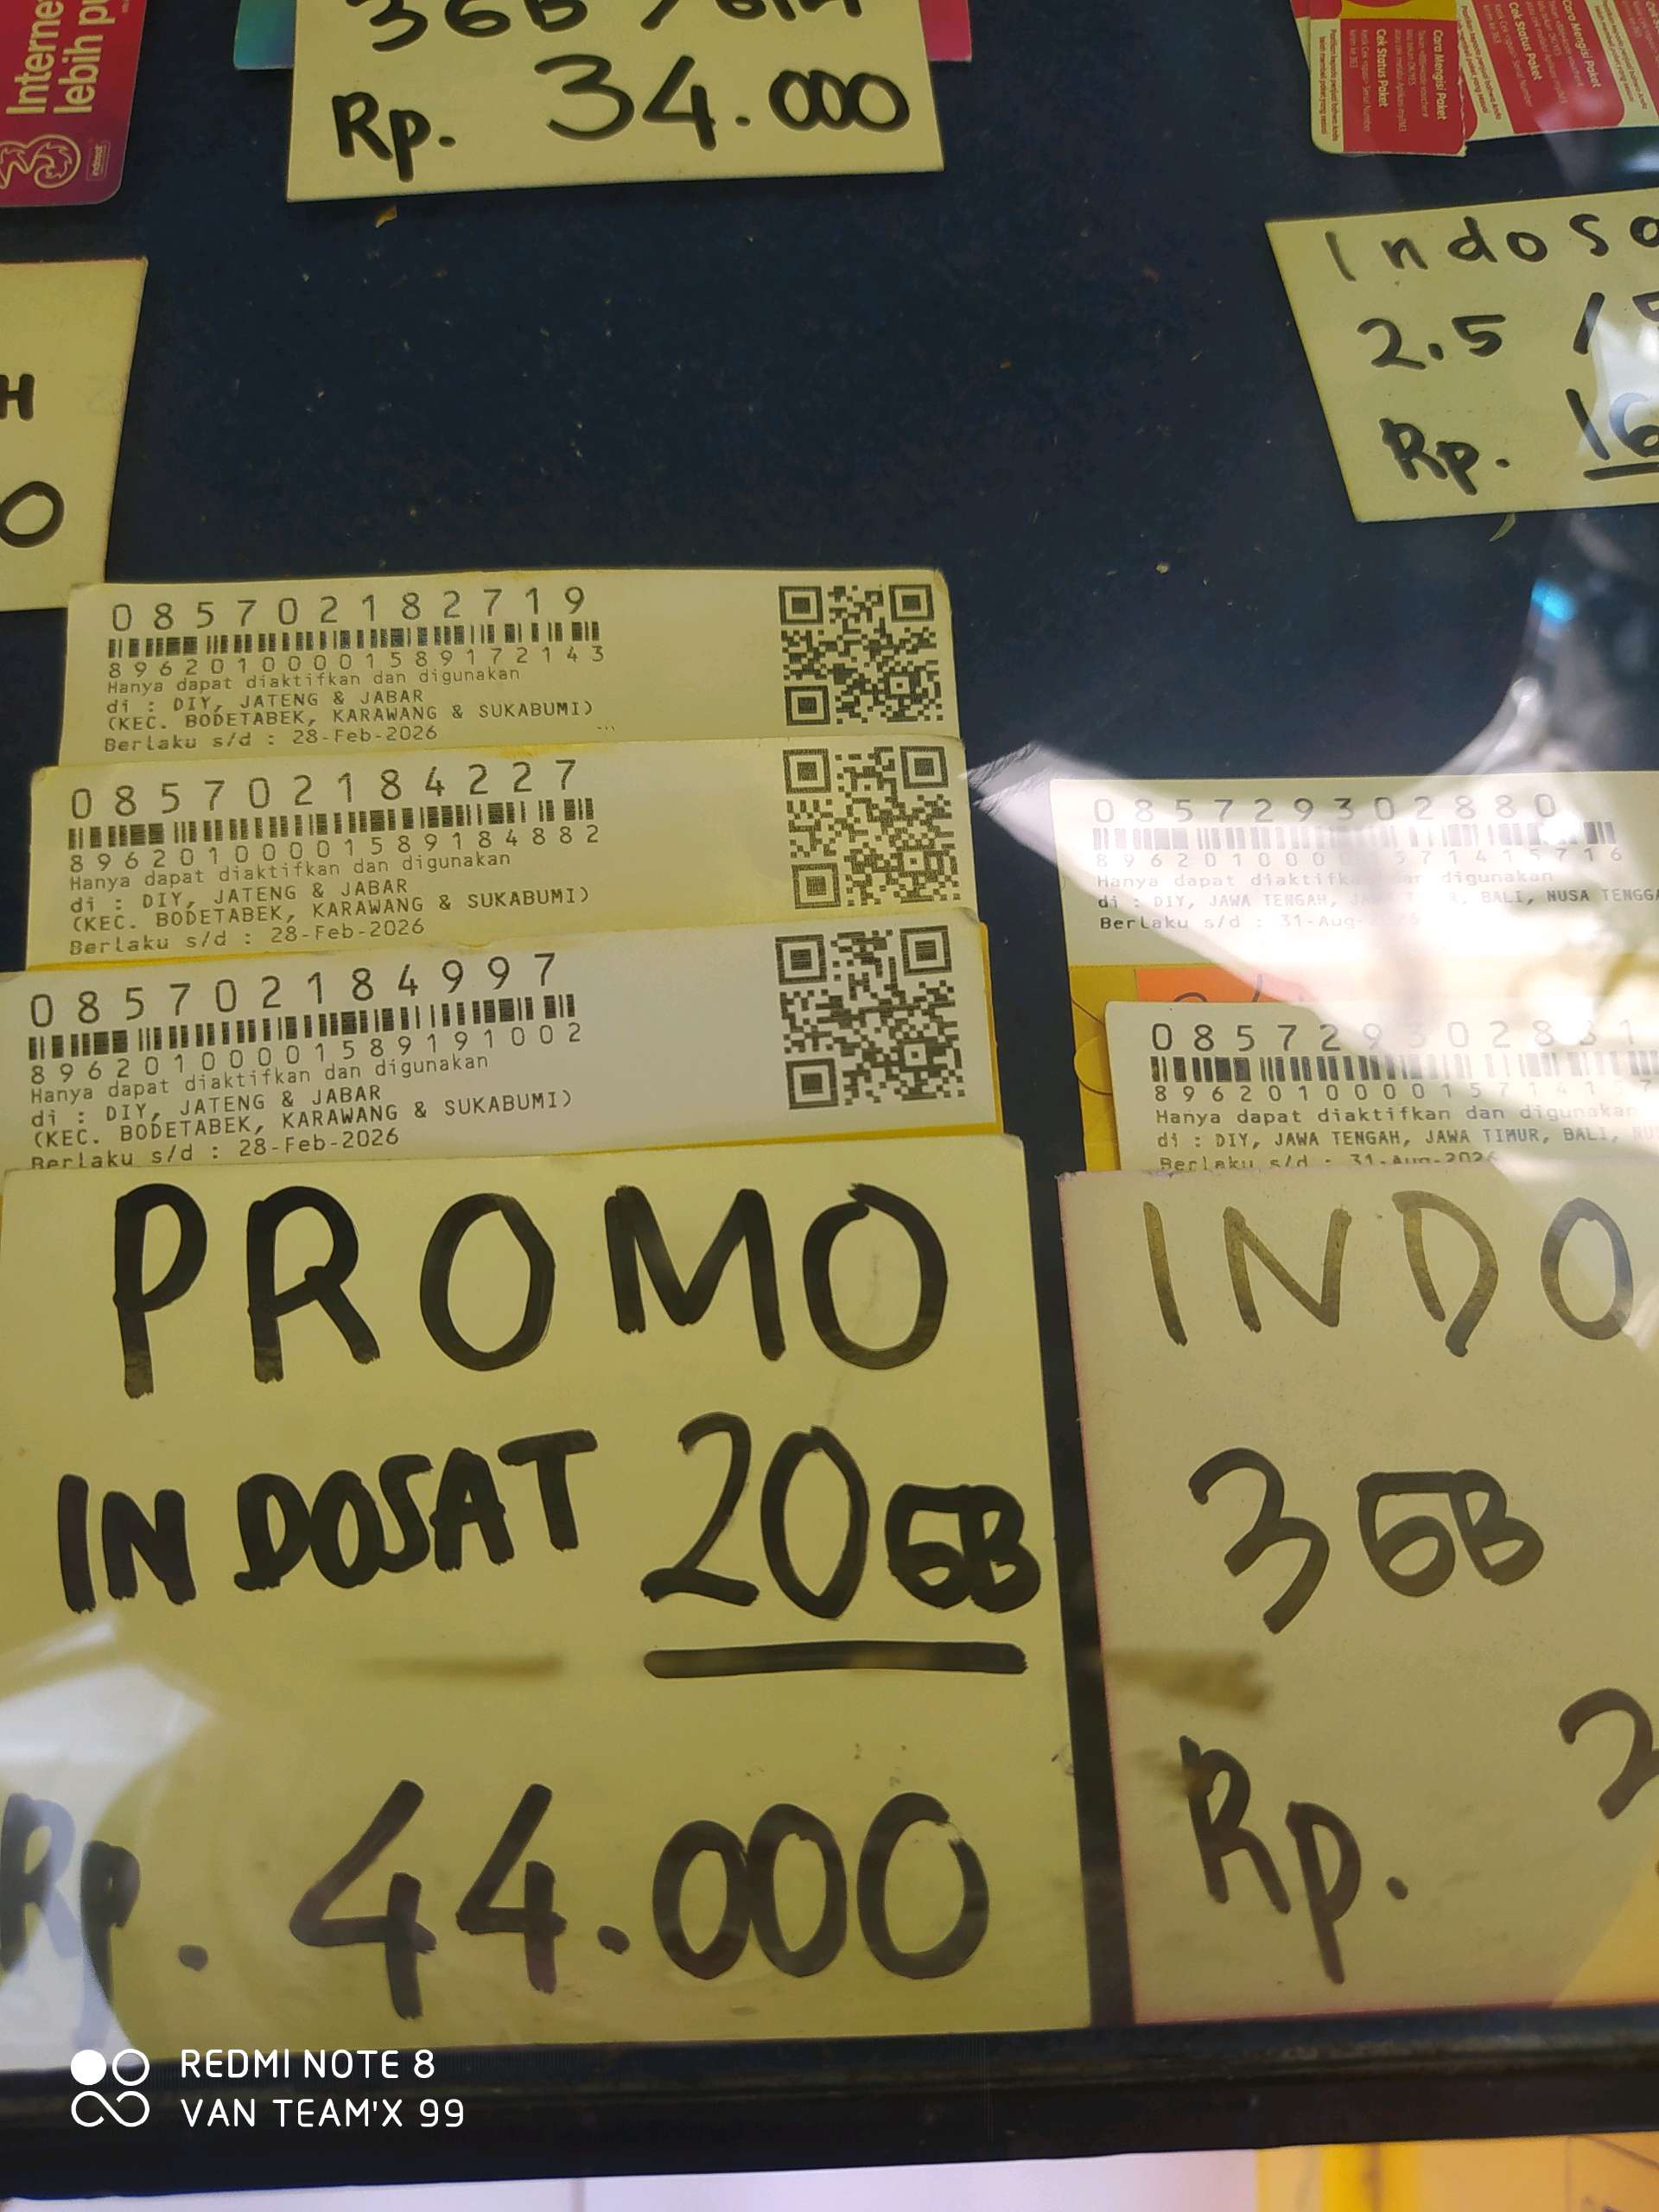 Interne
lebih pu
3
indosat
3GB / BLN
Rp. 34.000
Cara Mengisi Paket
Cek Status Paket
Cara Mengisi Paket
Cek Status Paket
H
0
Indosa
2.5 /
Rp. 16
085702182719
89620100001589172143
Hanya dapat diaktifkan dan digunakan
di : DIY, JATENG & JABAR
(KEC. BODETABEK, KARAWANG & SUKABUMI)
Berlaku s/d : 28-Feb-2026
085702184227
89620100001589184882
Hanya dapat diaktifkan dan digunakan
di : DIY, JATENG & JABAR
(KEC. BODETABEK, KARAWANG & SUKABUMI)
Berlaku s/d : 28-Feb-2026
085702184997
89620100001589191002
Hanya dapat diaktifkan dan digunakan
di : DIY, JATENG & JABAR
(KEC. BODETABEK, KARAWANG & SUKABUMI)
Berlaku s/d : 28-Feb-2026
PROMO
INDOSAT 20GB
Rp. 44.000
085729302880
Hanya dapat digunakan
di : DIY, JAWA TENGAH, BALI, NUSA TENGGA
Berlaku s/d : 31-Aug-
Hanya dapat diaktifkan dan digunakan
di : DIY, JAWA TENGAH, JAWA TIMUR, BALI,
Berlaku s/d : 31-Aug-2026
INDO
3GB
Rp. 2
REDMI NOTE 8
VAN TEAM'X 99